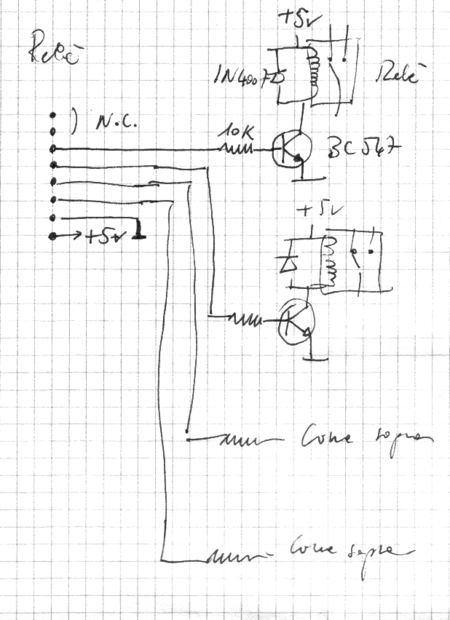 +5v
Relè
1N4007
Relè
) N.C.
10K
BC547
+5v
→+5v
Come sopra
Come sopra